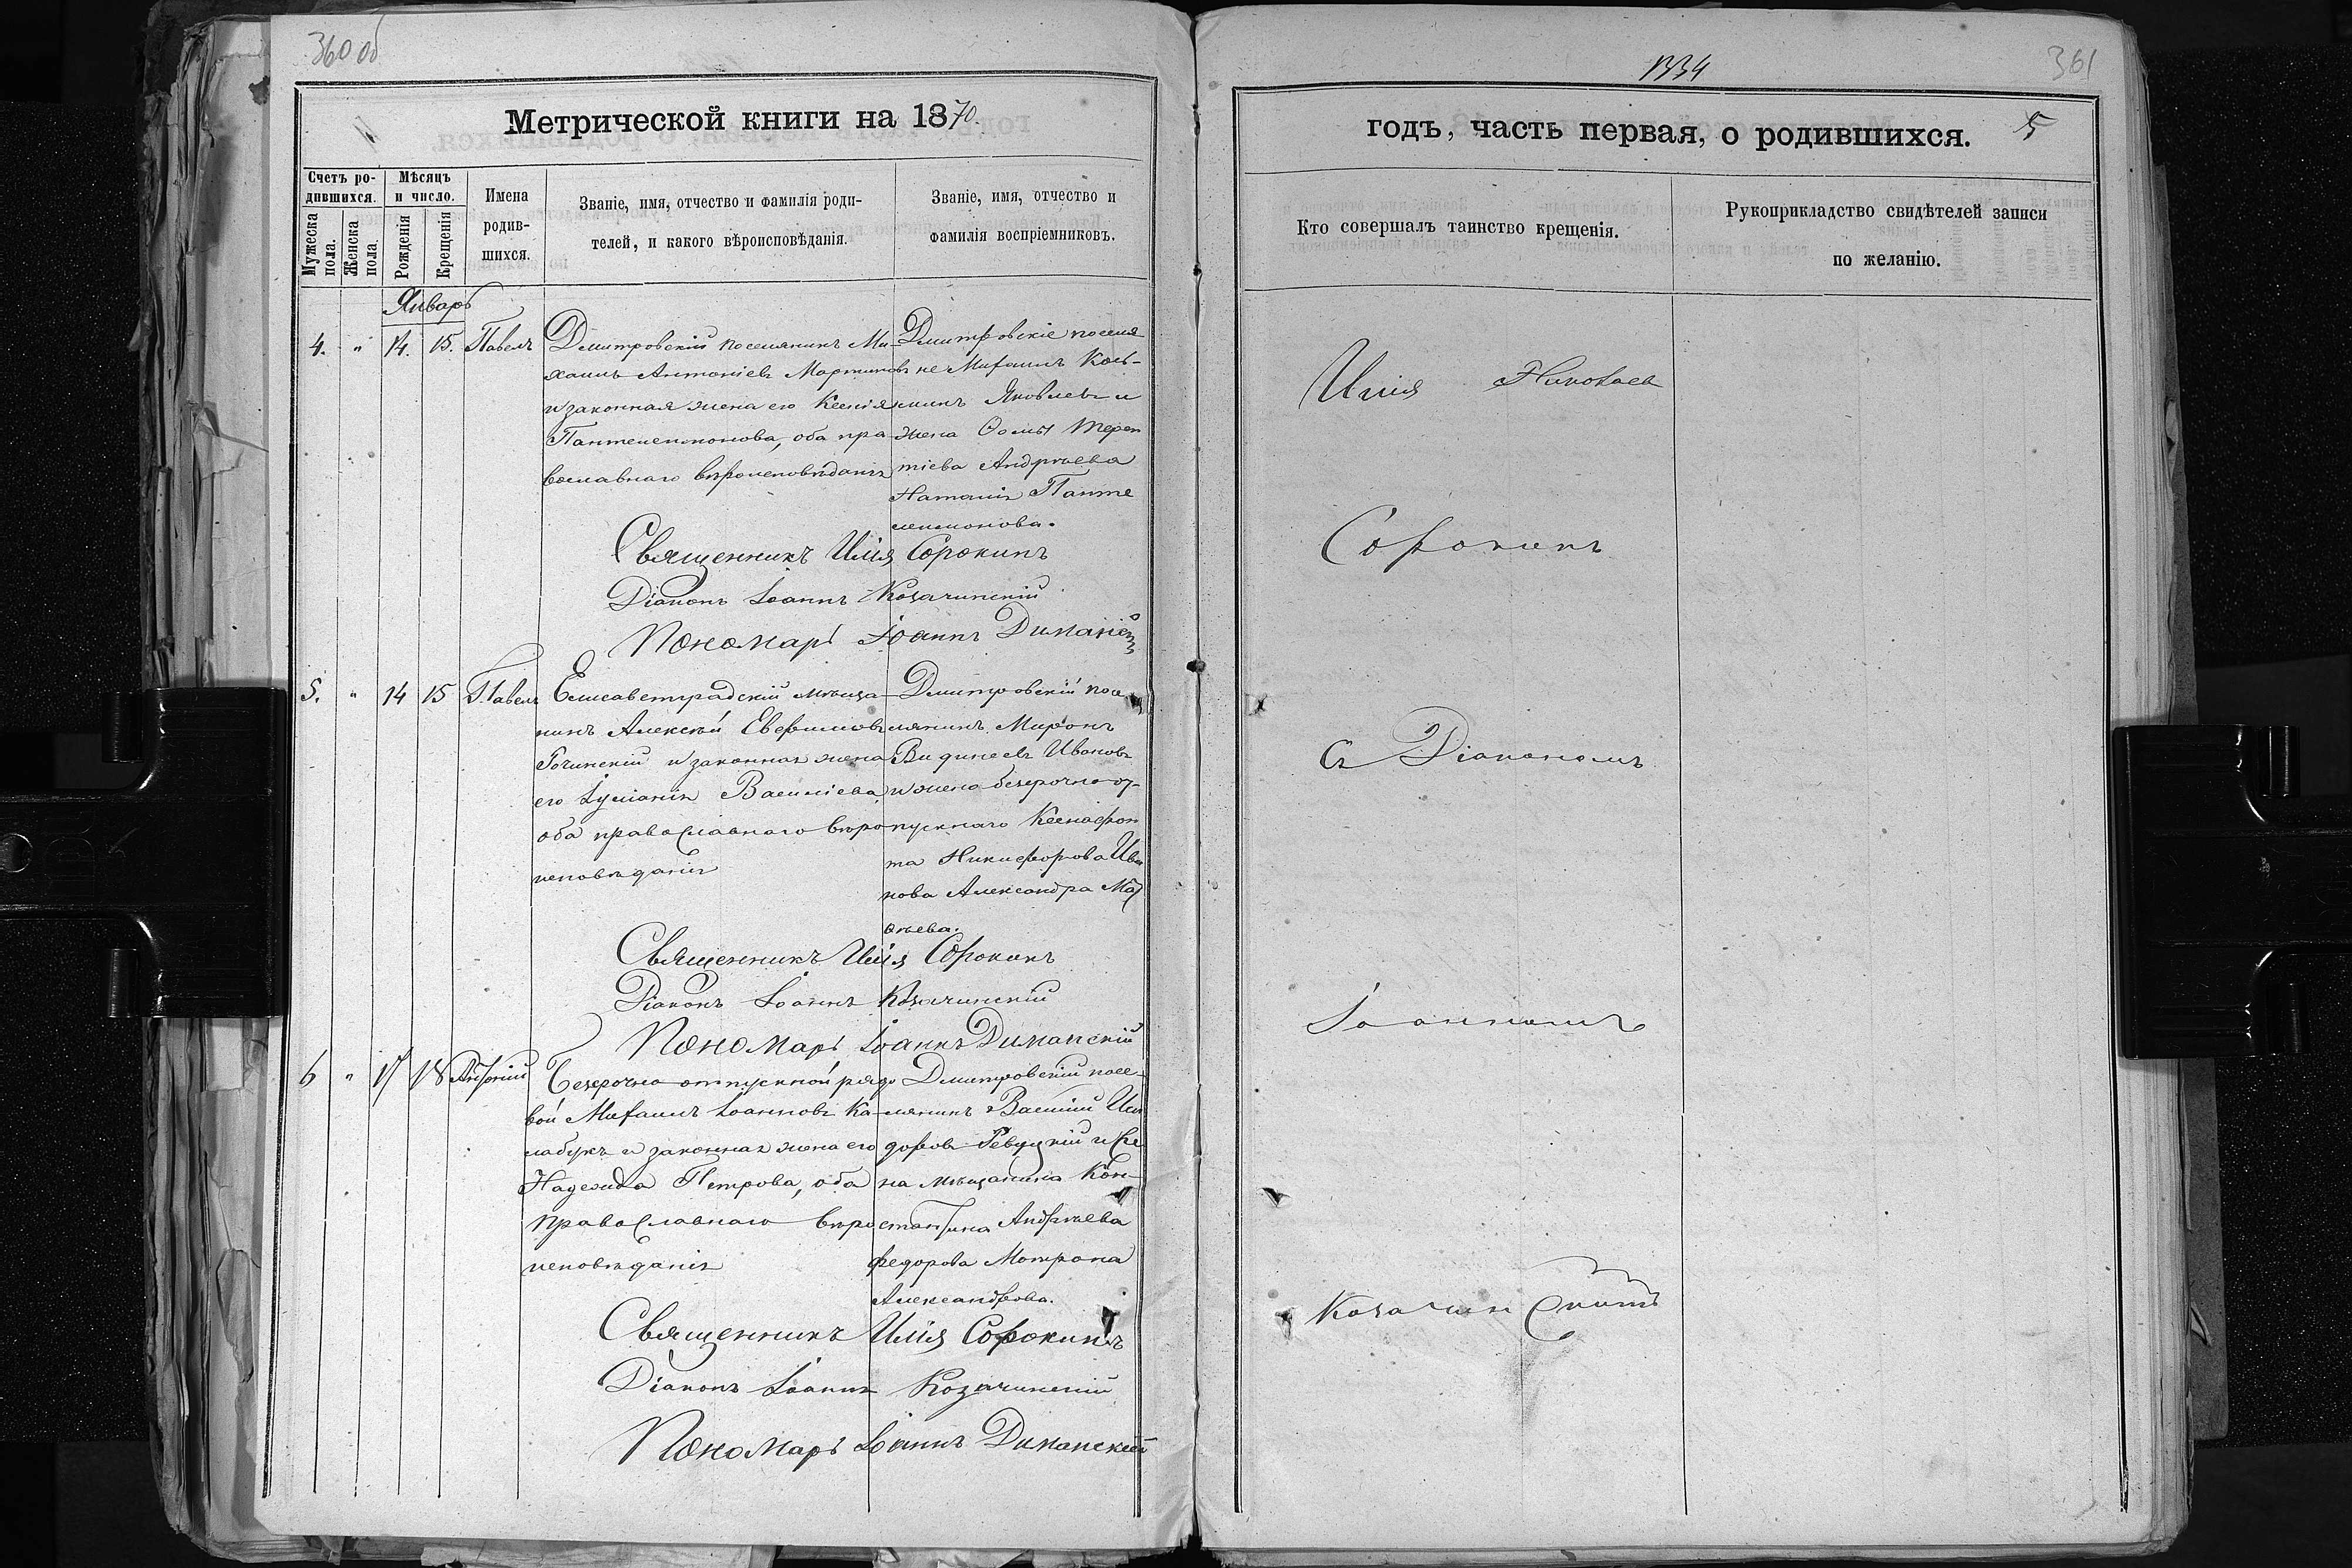 360 об
Метрической книги на 1870.
Счетъ ро-
дившихся.
Мѣсяцъ
и число.
Имена
родив-
шихся.
Званіе, имя, отчество и фамилія роди-
телей, и какого вѣроисповѣданія.
Званіе, имя, отчество и
фамилія воспріемниковъ.
Мужеска
пола.
Женска
пола.
Рожденія
Крещенія
Январь
4. " 14. 15. Павелъ
Дмитровскій поселянинъ Ми-
хаилъ Антоніевъ Мартиновъ
и законная жена его Ксенія
Пантелеимонова, оба пра-
вославнаго вѣроисповѣданія
Дмитровскіе поселя
не Михаилъ Козь-
минъ Яковлевъ и
жена Ѳомы Терен
тіева Андреева
Наталія Панте
леимонова.
Священникъ Илія Сорокинъ
Діаконъ Іоаннъ Козачинскій
Пономарь Іоаннъ
5. " 14 15 Павелъ
Елисаветградскій мѣща-
нинъ Алексѣй Евфимовъ
и законная жена
его Іуліанія Василіева,
оба православнаго вѣро
исповѣданія
Дмитровскій посе
лянинъ Миронъ
Ивановъ
и жена безсрочно от-
пускнаго Ксенофон
та Никифорова Ива
нова Александра Мат
ѳеева.
Священникъ Илія Сорокинъ
Діаконъ Іоаннъ Козачинскій
Пономарь Іоаннъ Диманскій
6 " 17 18 Антоній
Безсрочно отпускной рядо
вой Михаилъ Іоанновъ Ка-
лабухъ и законная жена его
Надежда Петрова, оба
православнаго вѣро
исповѣданія
Дмитровскій посе-
лянинъ Василій Иси
доровъ Ревуцкій и же
на мѣщанина Кон-
стантина Андреева
Федорова Мотрона
Александрова.
Священникъ Илія Сорокинъ
Діаконъ Іоаннъ Козачинскій
Пономарь Іоаннъ Диманскій
1334
361
годъ, часть первая, о родившихся. 5
Кто совершалъ таинство крещенія.
Рукоприкладство свидѣтелей записи
по желанію.
Илія Николаев
Сорокинъ
съ Діакономъ
Іоанномъ
Козачинскимъ